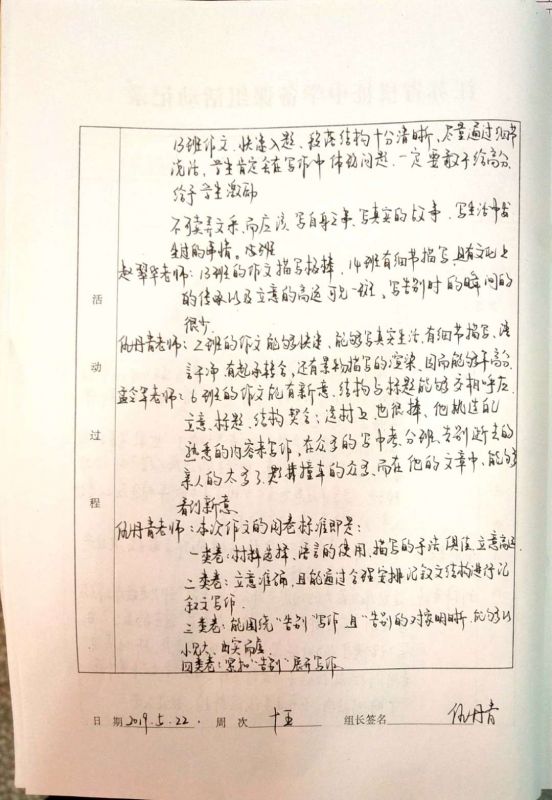 13班作文,快速入题,段落结构十分清晰,尽量通过细节
浇注,学生肯定会在写作中体现问题,一定要敢于给高分,
给予学生激励
不可卖弄文采,而应该写自身之事、写真实的故事,写生活中发
生过的事情。
赵翠华老师:13班的作文描写极棒,14班有细节描写,且有文化上
的传承以及立意的高远可见一斑,写告别时的瞬间的
很少。
仇丹青老师:2班的作文能够快速、能够写真实生活,有细节描写、语
言干净,有起承转合,还有景物描写的渲染,因而能够得高分。
老师:6班的作文能有新意,结构与标题能够互相呼应,
立意、标题、结构契合;选材上也很棒,他挑选自己
熟悉的内容来写作,在众多的写中考、分班、告别逝去的
亲人的太多了,撞车的众多,而在他的文章中,能够
看到新意
仇丹青老师:本次作文的阅卷标准即是:
一类卷:材料选择、语言的使用,描写的手法俱佳,立意高远
二类卷:立意准确,且能通过合理安排记叙文结构进行记
叙文写作.
三类卷:能围绕“告别”写作,且“告别”的对象明晰,能够以
小见大,由实而虚
四类卷:紧扣“告别”展开写作.
活
动
过
程
日 期 2019.5.22. 周 次 十五 组长签名 仇丹青